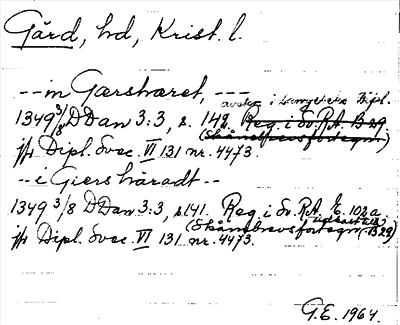 Gärd, hd, Krist. l.
--in Gærshæret, ---
avskr. i Dipl.
1349 3/8 DDan 3:3, s. 142. Reg. i Sv. R.A. B 29
(Skånebrevsförtegn.)
jfr Dipl. Svec. VI 131 nr. 4473.
--i Giershäradt--
1349 3/8 DDan 3:3, s. 141. Reg. i Sv. R.A. E. 102a
(Skånebrevsfortegn. B 29)
jfr Dipl. Svec. VI 131 nr. 4473.
G.E. 1964.